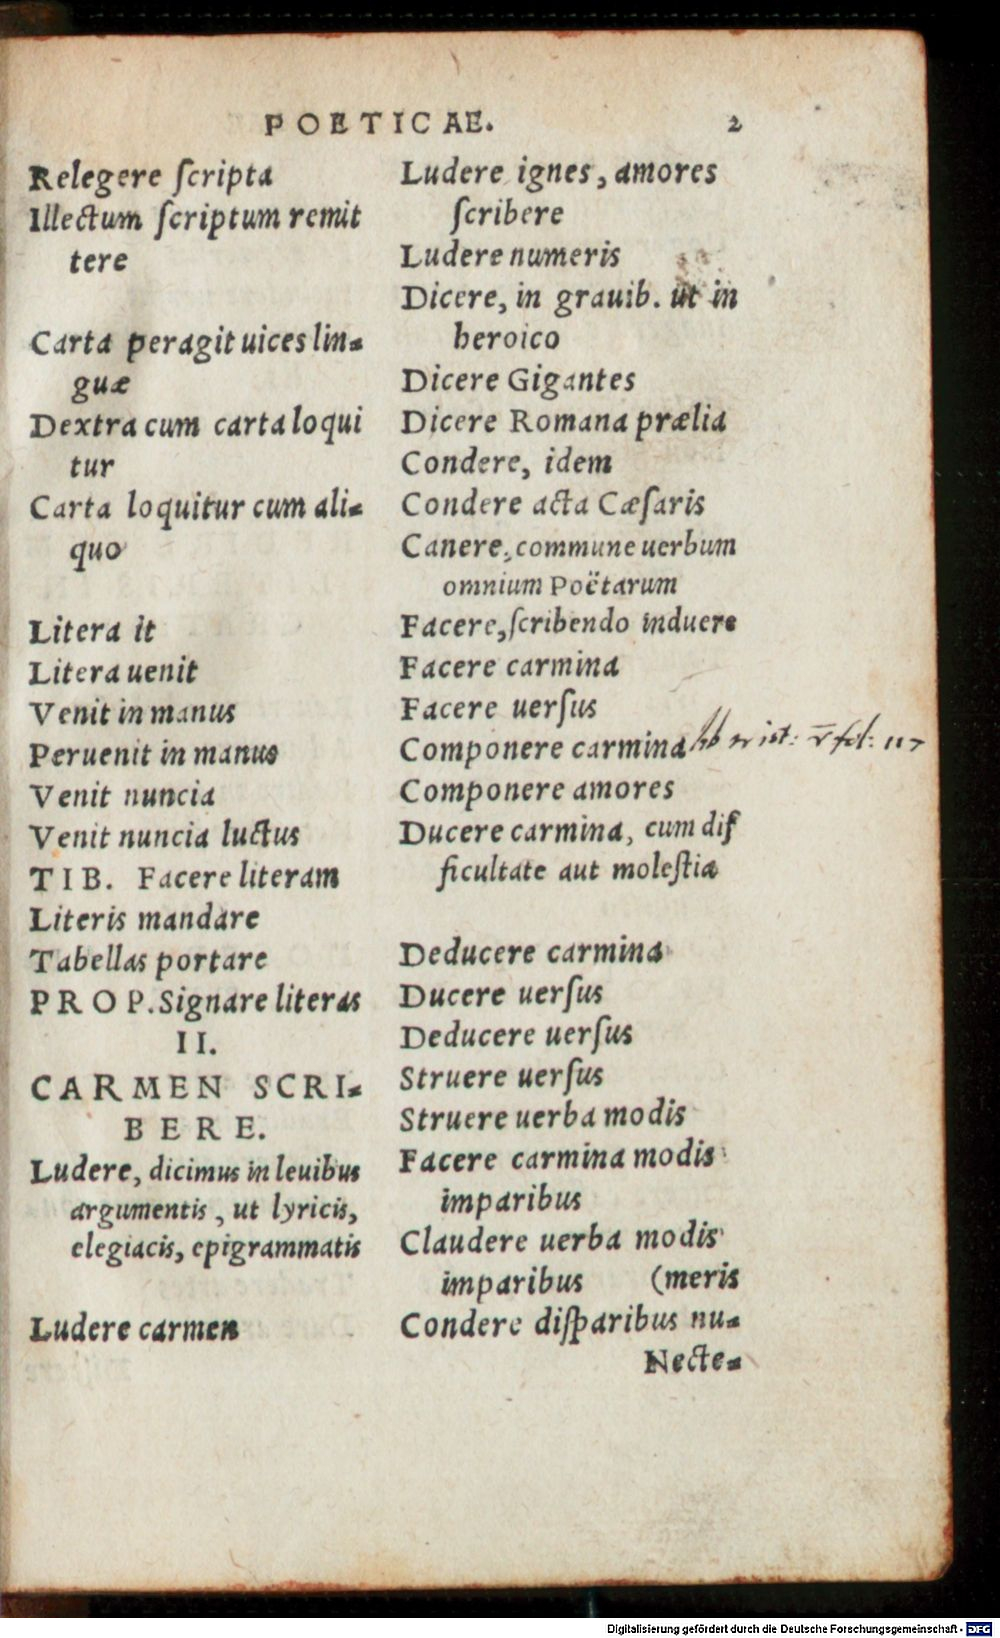 POETICAE. 2
Relegere ſcripta
Illectum ſcriptum remit
tere
Carta peragit uices lin-
guæ
Dextra cum carta loqui
tur
Carta loquitur cum ali-
quo
Litera it
Litera uenit
Venit in manus
Peruenit in manus
Venit nuncia
Venit nuncia luctus
TIB. Facere literam
Literis mandare
Tabellas portare
PROP. Signare literas
II.
CARMEN SCRI-
BERE.
Ludere, dicimus in leuibus
argumentis, ut lyricis,
elegiacis, epigrammatis
Ludere carmen
Ludere ignes, amores
ſcribere
Ludere numeris
Dicere, in grauib. ut in
heroico
Dicere Gigantes
Dicere Romana prælia
Condere, idem
Condere acta Cæſaris
Canere, commune uerbum
omnium Poëtarum
Facere, ſcribendo induere
Facere carmina
Facere uerſus
Componere carmina
Componere amores
Ducere carmina, cum dif
ficultate aut moleſtia
Deducere carmina
Ducere uerſus
Deducere uerſus
Struere uerſus
Struere uerba modis
Facere carmina modis
imparibus
Claudere uerba modis
imparibus (meris
Condere diſparibus nu-
Necte-
Digitalisierung gefördert durch die Deutsche Forschungsgemeinschaft - DFG